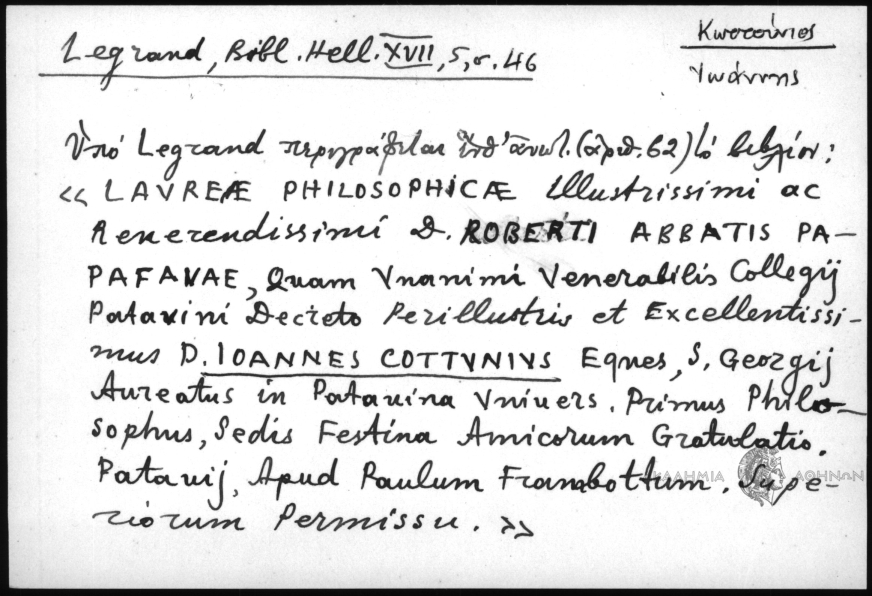 Κωττούνιος
Ἰωάννης
Legrand, Bibl. Hell. XVII, 5, σ. 46
Ὑπό Legrand περιγράφεται ὑπ' ἀριθ. 62) τό βιβλίον:
«LAVREÆ PHILOSOPHICÆ Illustrissimi ac
Reuerendissimi D. ROBERTI ABBATIS PA-
PAFAVAE, Quam Vnanimi Venerabilis Collegij
Patavini Decreto Perillustris et Excellentissi-
mus D. IOANNES COTTVNIVS Eques, S. Georgij
Aureatus in Patauina Vniuers. Primus Philo-
sophus, Sedis Festina Amicorum Gratulatio.
Patauij, Apud Paulum Frambottum. Supe-
riorum Permissu.»
ΑΚΑΔΗΜΙΑ ΑΘΗΝΩΝ